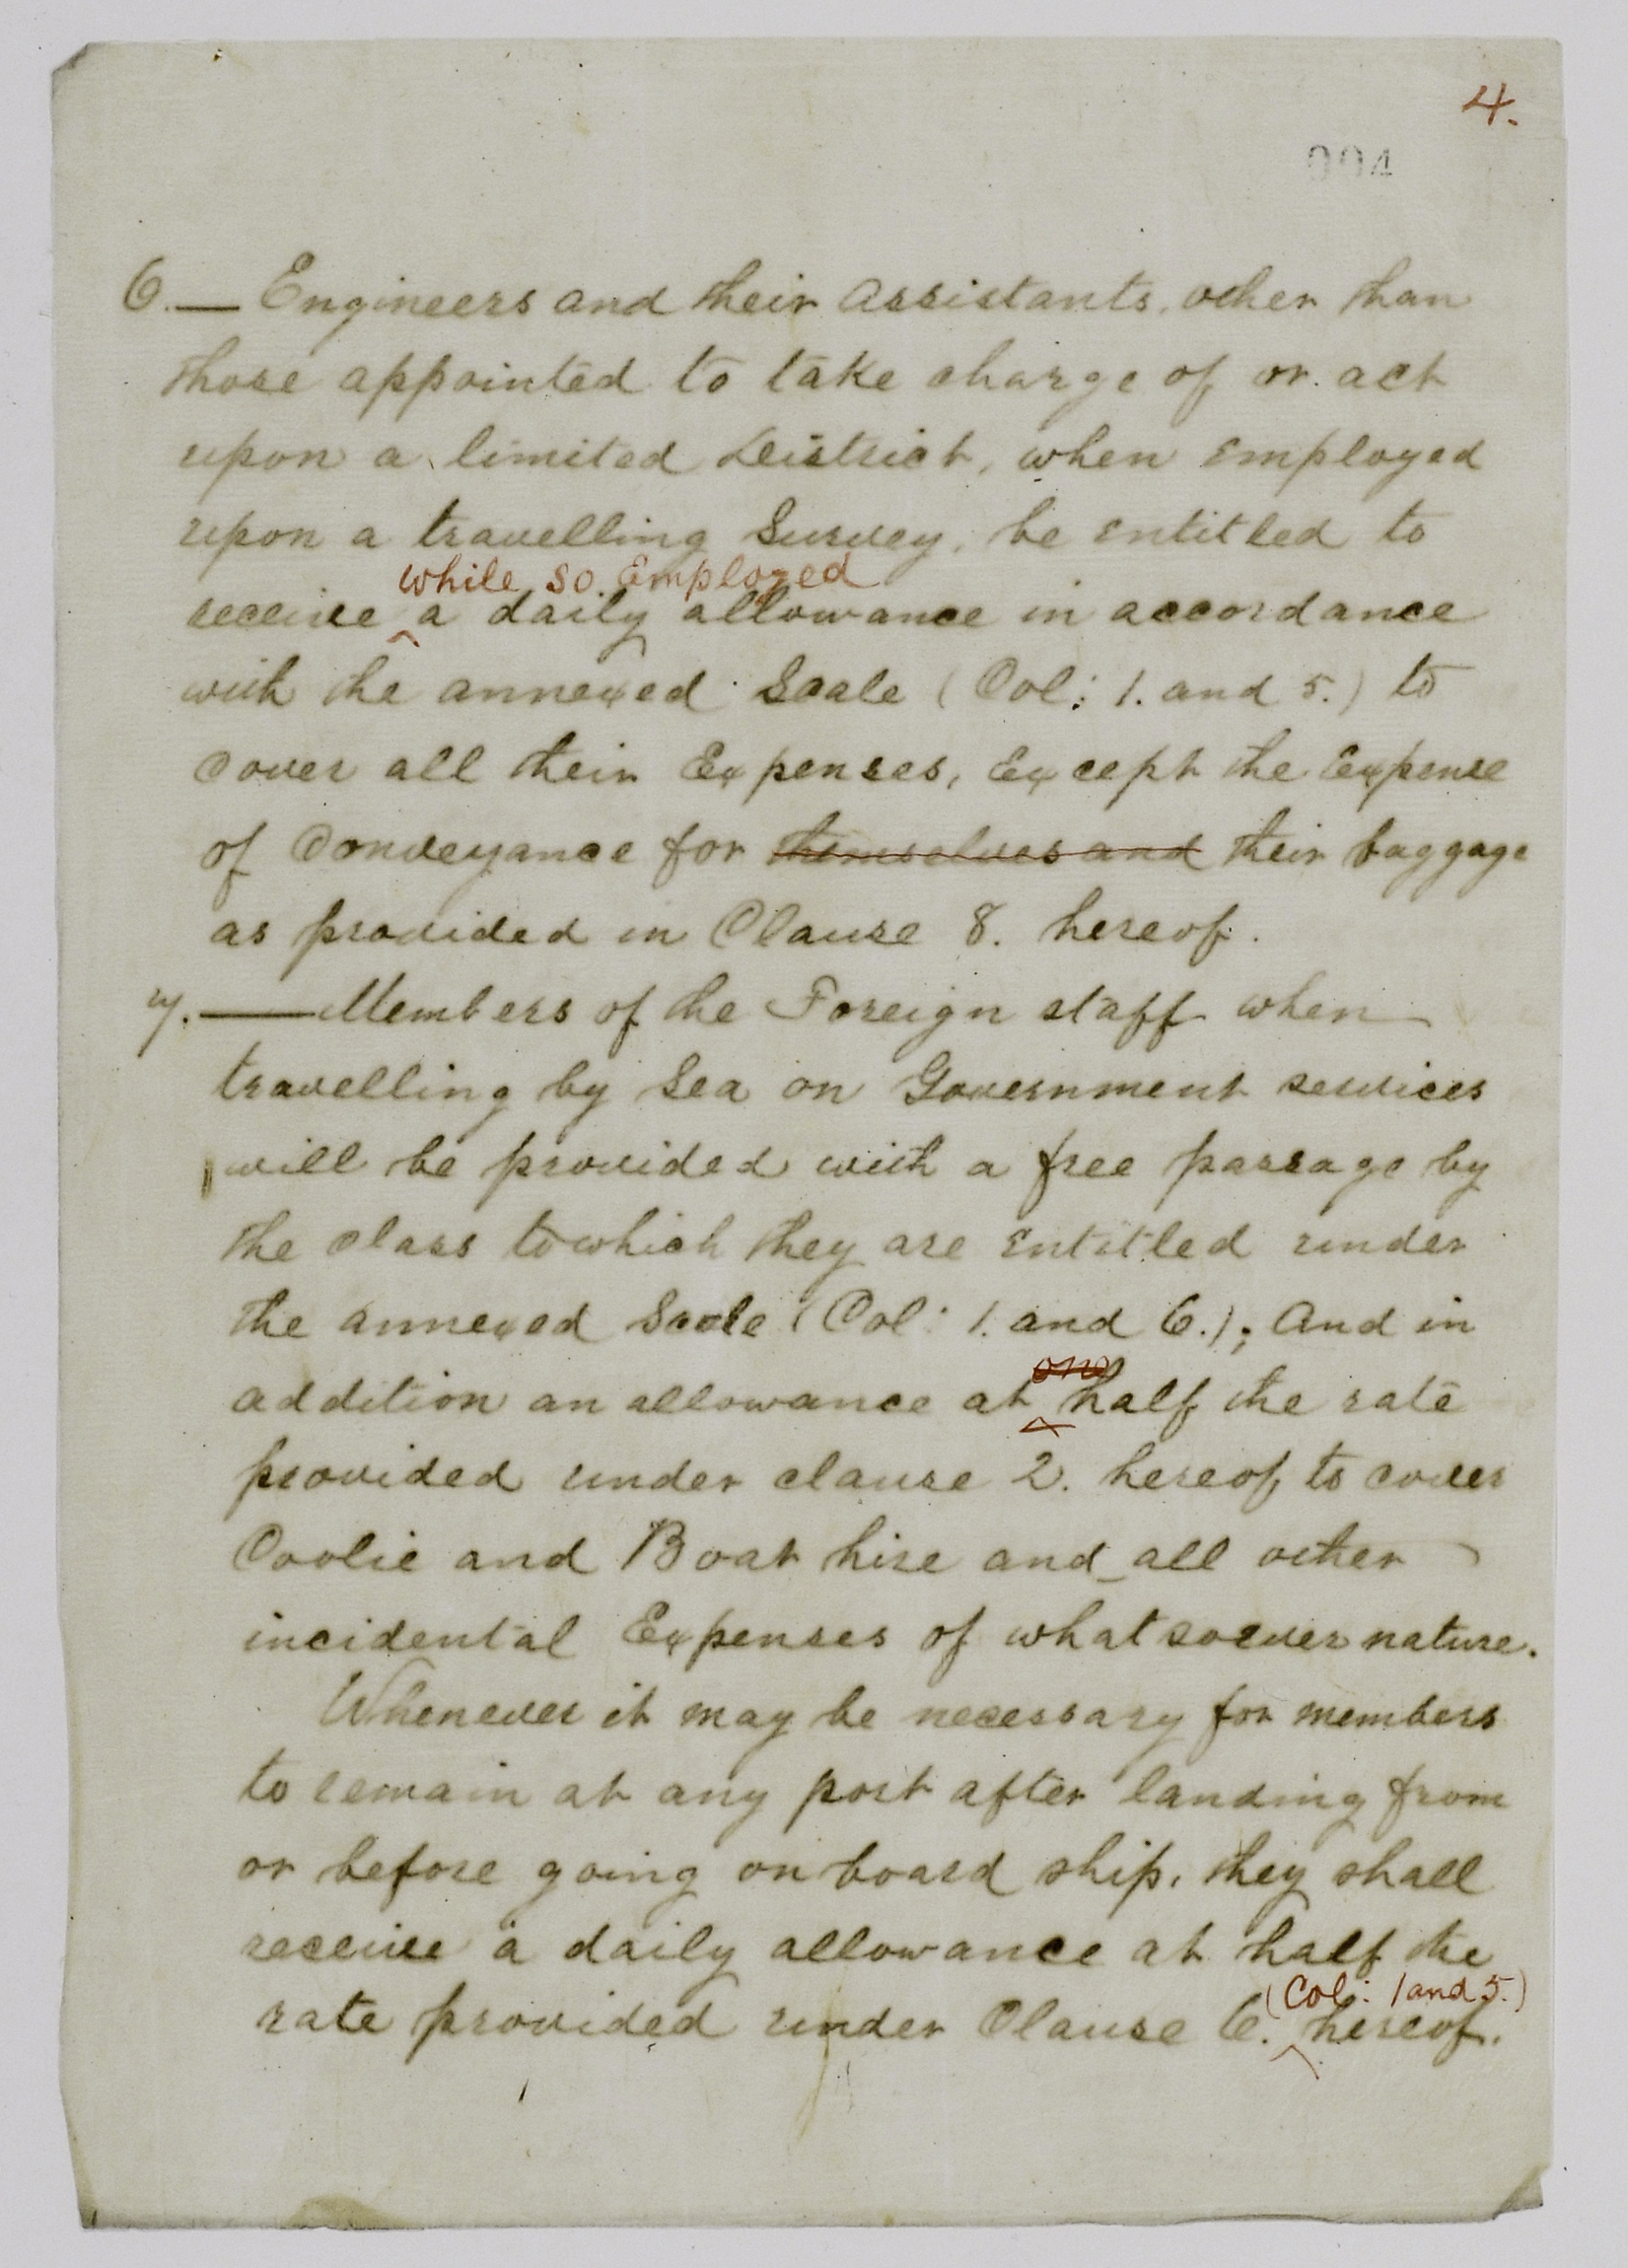 4.
004
6.— Engineers and their assistants, other than
those appointed to take charge of or act
upon a limited District, when employed
upon a travelling Survey, be entitled to
while so Employed
receive a daily allowance in accordance
with the annexed Scale (Col: 1. and 5.) to
cover all their Expenses, Except the Expense
of Conveyance for themselves and their baggage
as provided in Clause 8. hereof.
7.— Members of the Foreign staff when
travelling by Sea on Government services
will be provided with a free passage by
the class to which they are entitled under
the annexed Scale (Col: 1. and 6.); And in
one
addition an allowance at half the rate
provided under clause 2. hereof, to cover
Coolie and Boat hire and all other
incidental Expenses of whatsoever nature.
Whenever it may be necessary for members
to remain at any port after landing from
or before going on board ship, they shall
receive a daily allowance at half the
(Col: 1 and 5.)
rate provided under Clause 6. hereof.